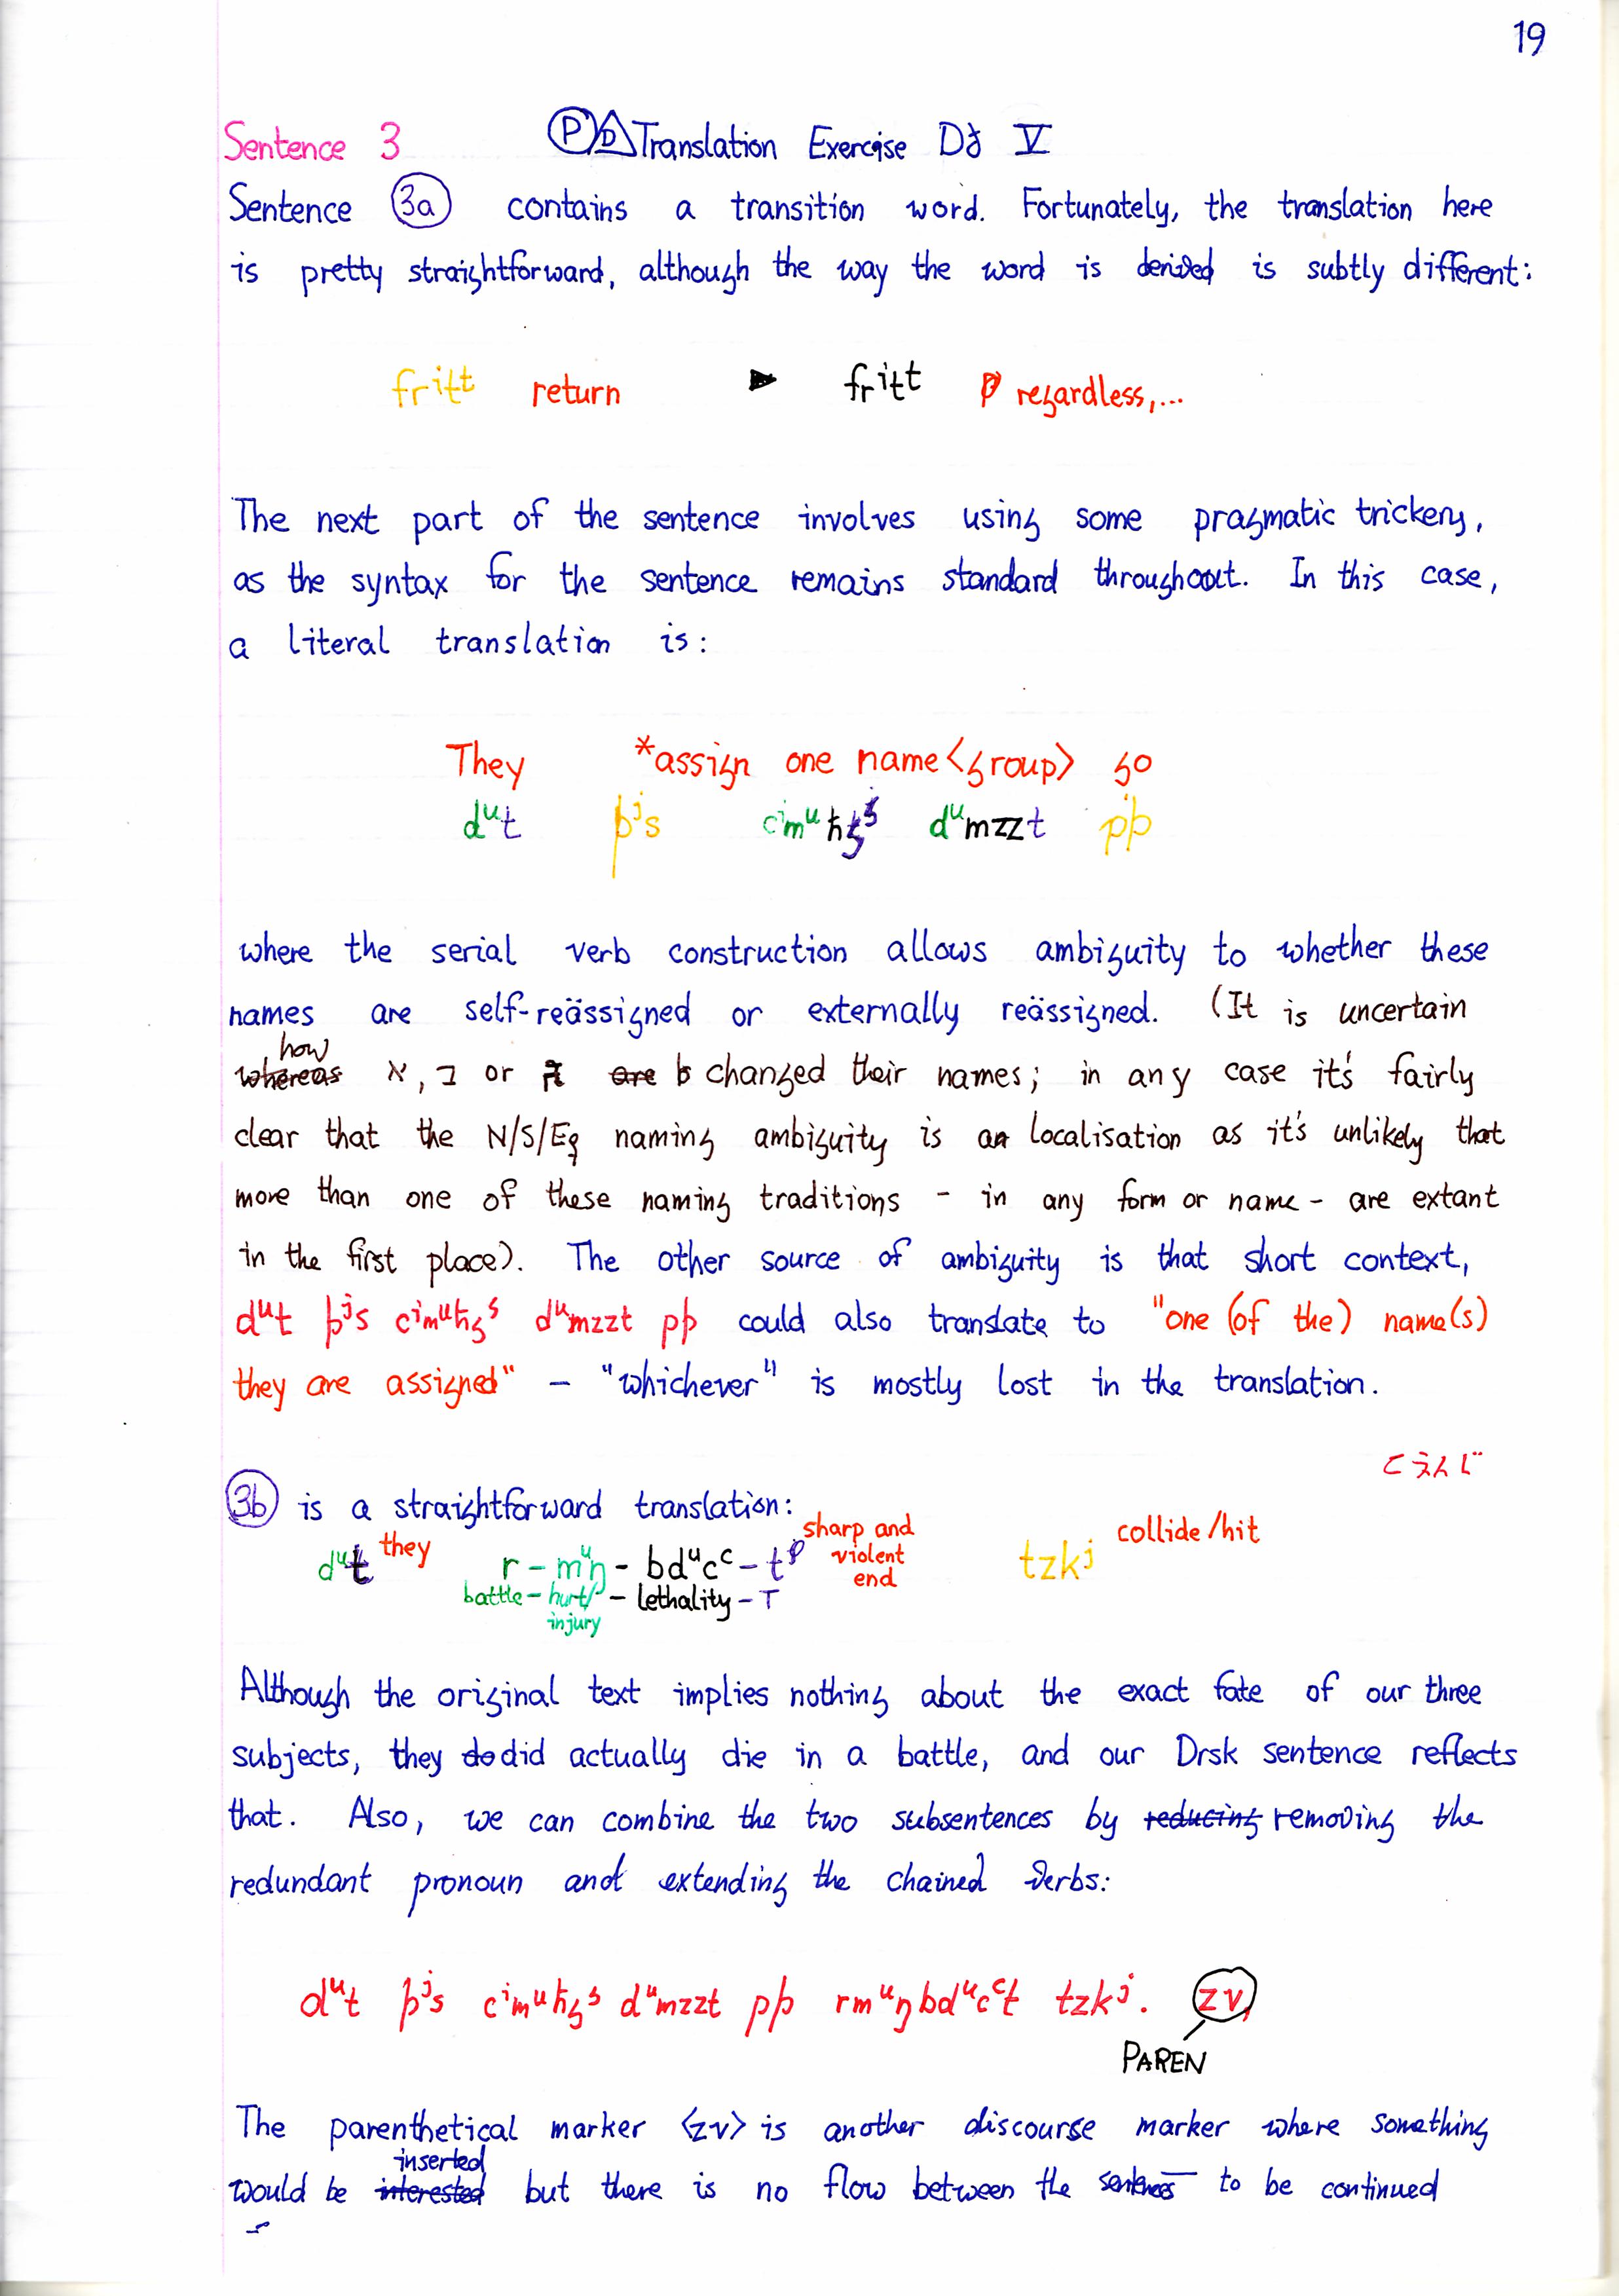 19
Sentence 3 PD Translation Exercise Dʒ V
Sentence 3a contains a transition word. Fortunately, the translation here
is pretty straightforward, although the way the word is derived is subtly different:
fritt return ► fritt regardless,...
The next part of the sentence involves using some pragmatic trickery,
as the syntax for the sentence remains standard throughout. In this case,
a literal translation is:
They *assign one name<group> go
dᵘt þʲs cⁱmᵘ dᵘmzzt pþ
where the serial verb construction allows ambiguity to whether these
names are self-reässigned or externally reässigned. (It is uncertain
how
whereas א, ב or are b changed their names; in any case it's fairly
clear that the N/S/Eg naming ambiguity is a localisation as it's unlikely that
more than one of these naming traditions - in any form or name - are extant
in the first place). The other source of ambiguity is that short context,
dᵘt þʲs cⁱmᵘħgᶢ dᵘmzzt pþ could also translate to "one (of the) name(s)
they are assigned" – "whichever" is mostly lost in the translation.
こえんじ
3b is a straightforward translation:
dᵘt they r - mᵘŋ - bdᵘcᶜ - t sharp and violent end tzkʲ collide/hit
battle - hurt/injury - lethality - T
Although the original text implies nothing about the exact fate of our three
subjects, they do did actually die in a battle, and our Drsk sentence reflects
that. Also, we can combine the two subsentences by reducing removing the
redundant pronoun and extending the chained verbs:
dᵘt þʲs cⁱmᵘħgᶢ dᵘmzzt pþ rmᵘŋbdᵘcᶜt tzkʲ. zv,
PAREN
The parenthetical marker <zv> is another discourse marker where something
inserted
would be interested but there is no flow between the sentences to be continued